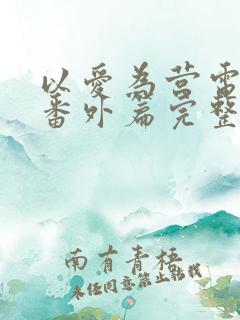 以爱为营電
番外篇完整
南有青梧
未经同意禁止转载